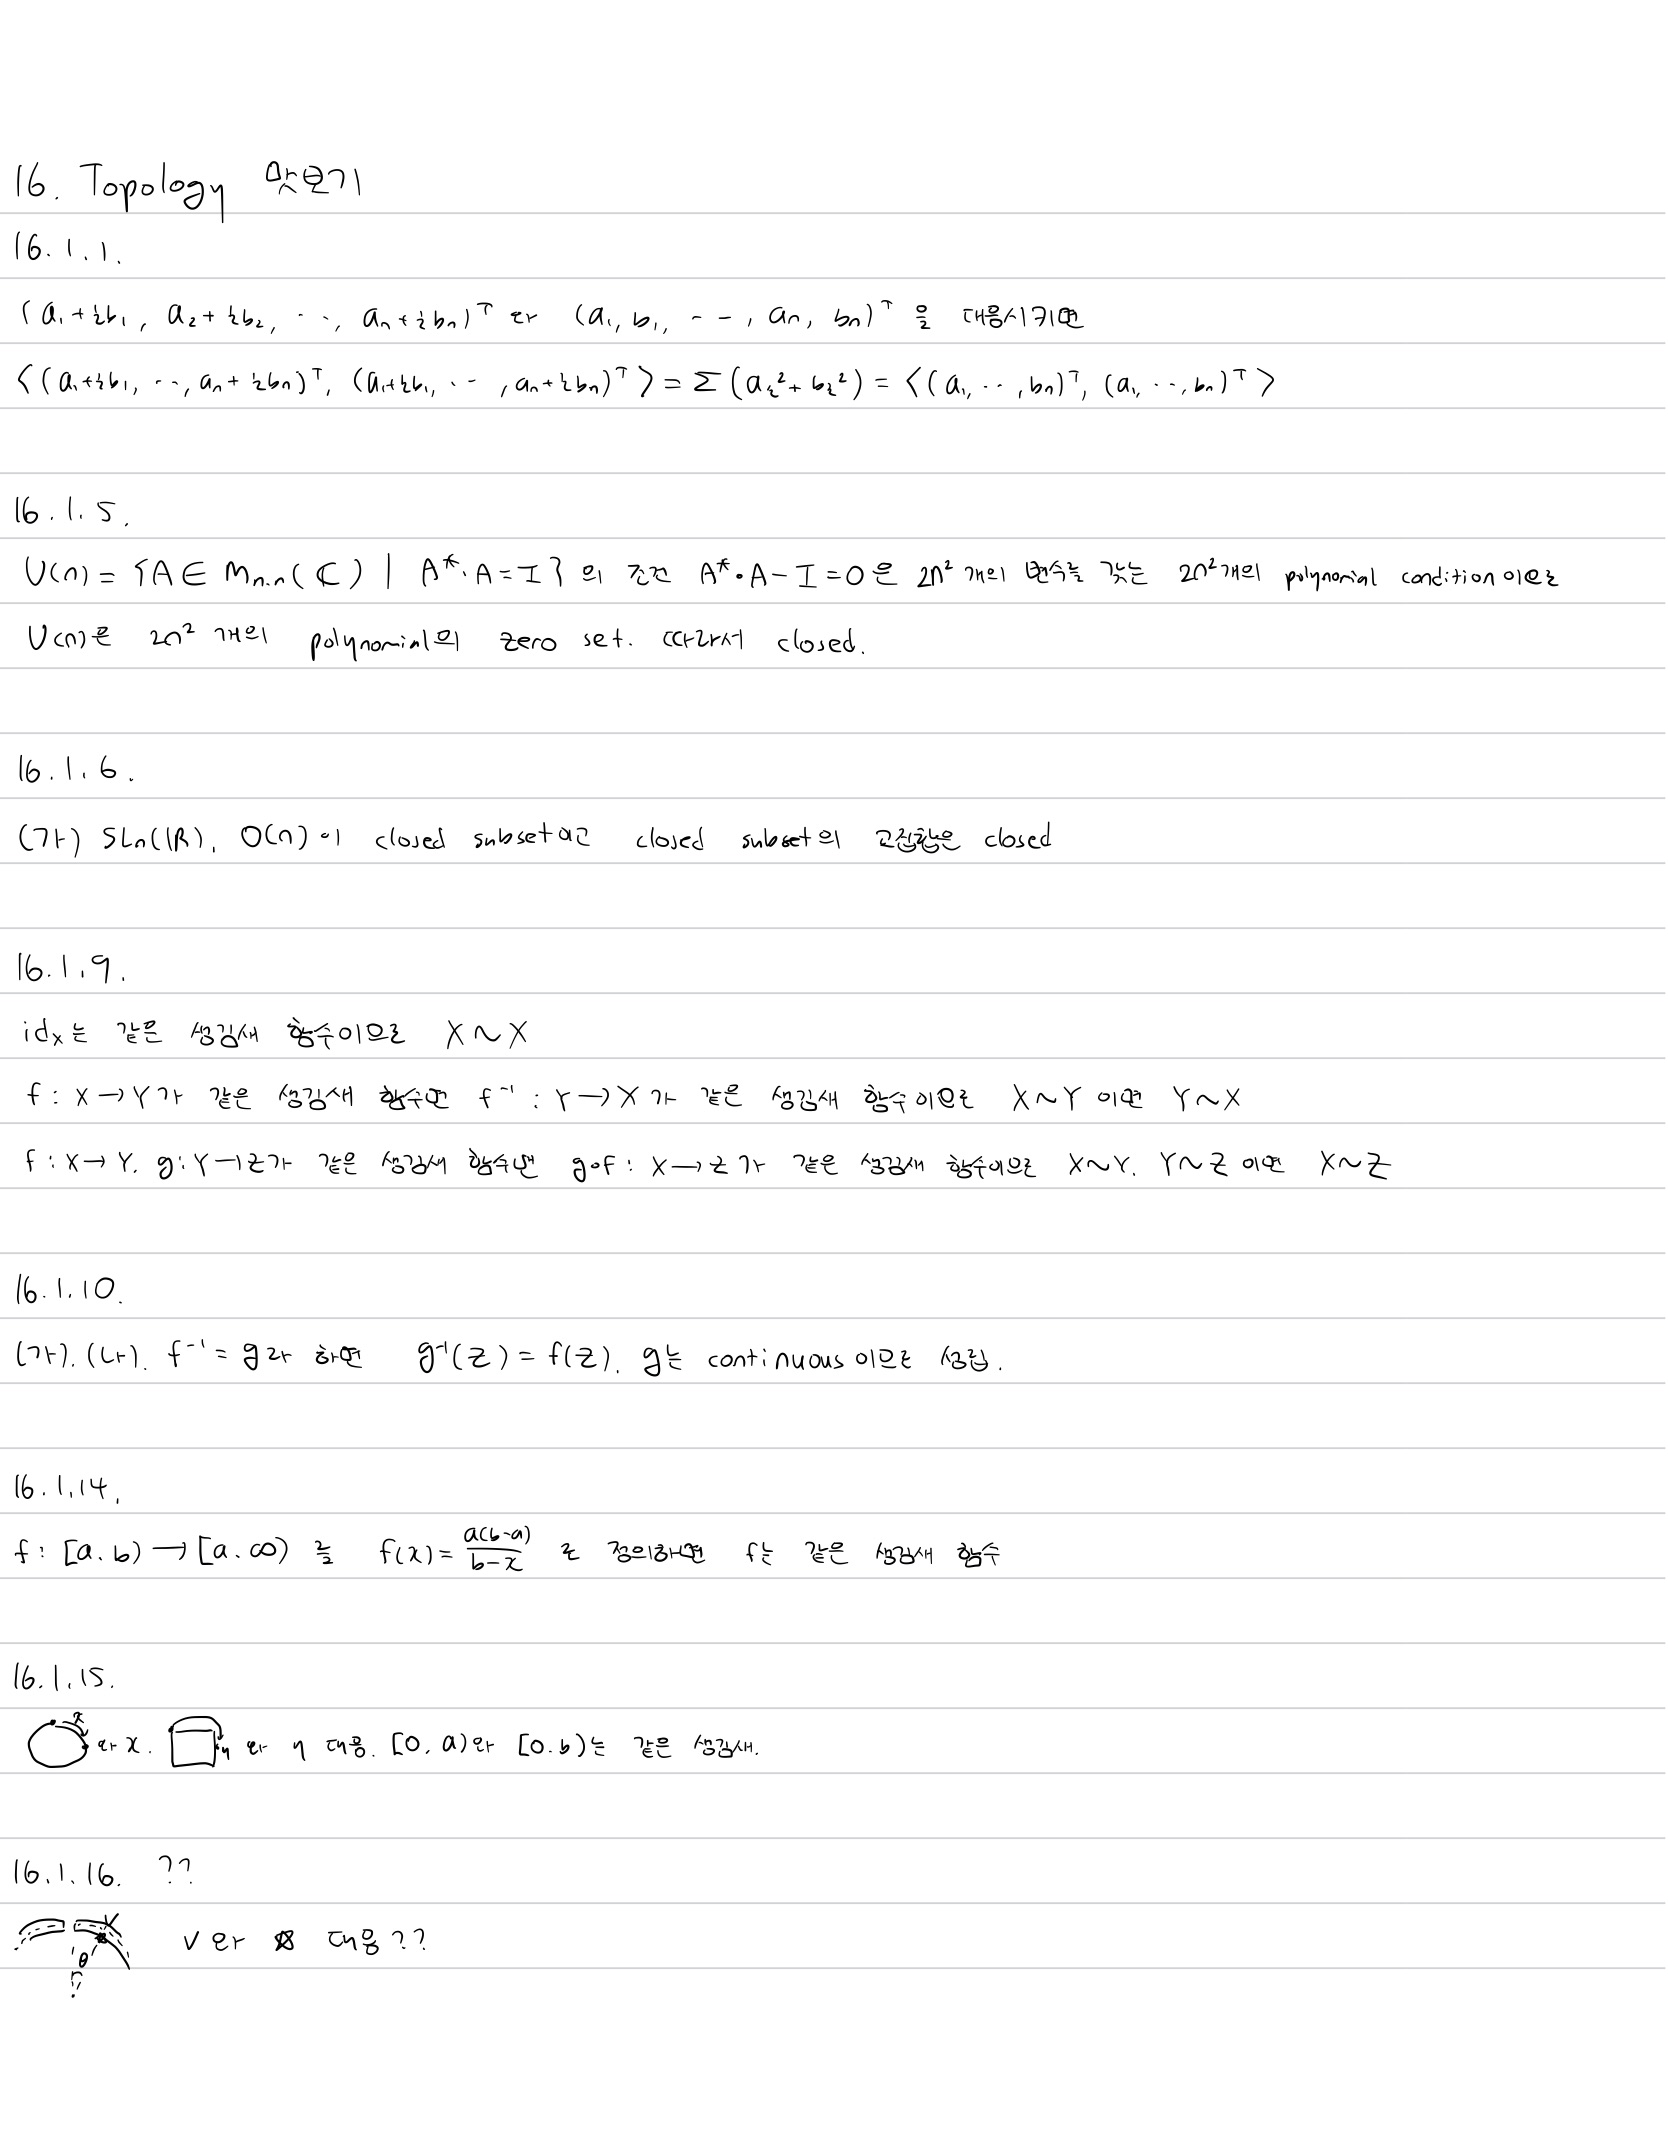 16. Topology 맛보기
16.1.1.
(a₁+ib₁, a₂+ib₂, ‥, aₙ+ibₙ)ᵀ 와 (a₁, b₁, --, aₙ, bₙ)ᵀ 을 대응시키면
<(a₁+ib₁, ‥, aₙ+ibₙ)ᵀ, (a₁+ib₁, ‥, aₙ+ibₙ)ᵀ> = Σ(aᵢ²+bᵢ²) = <(a₁, ‥, bₙ)ᵀ, (a₁, ‥, bₙ)ᵀ>
16.1.5.
U(n) = {A ∈ Mₙ.ₙ(ℂ) | A*·A=I} 의 조건 A*·A-I=0은 2n²개의 변수를 갖는 2n²개의 polynomial condition이므로
U(n)은 2n²개의 polynomial의 zero set. 따라서 closed.
16.1.6.
(가) SLn(ℝ), O(n)이 closed subset이고 closed subset의 교집합은 closed
16.1.9.
idₓ는 같은 생김새 함수이므로 X~X
f : X→Y가 같은 생김새 함수면 f⁻¹ : Y→X가 같은 생김새 함수이므로 X~Y이면 Y~X
f : X→Y. g : Y→Z가 같은 생김새 함수면 g∘f : X→Z가 같은 생김새 함수이므로 X~Y. Y~Z이면 X~Z
16.1.10.
(가). (나). f⁻¹=g라 하면 g⁻¹(Z) = f(Z). g는 continuous이므로 성립.
16.1.14.
f : [a. b) → [a. ∞) 를 f(x) = a(b-a)/b-x 로 정의하면 f는 같은 생김새 함수
16.1.15.
x 와 x. y 와 y 대응. [0, a)와 [0. b)는 같은 생김새.
16.1.16. ??
V θ r V와 ☆ 대응??